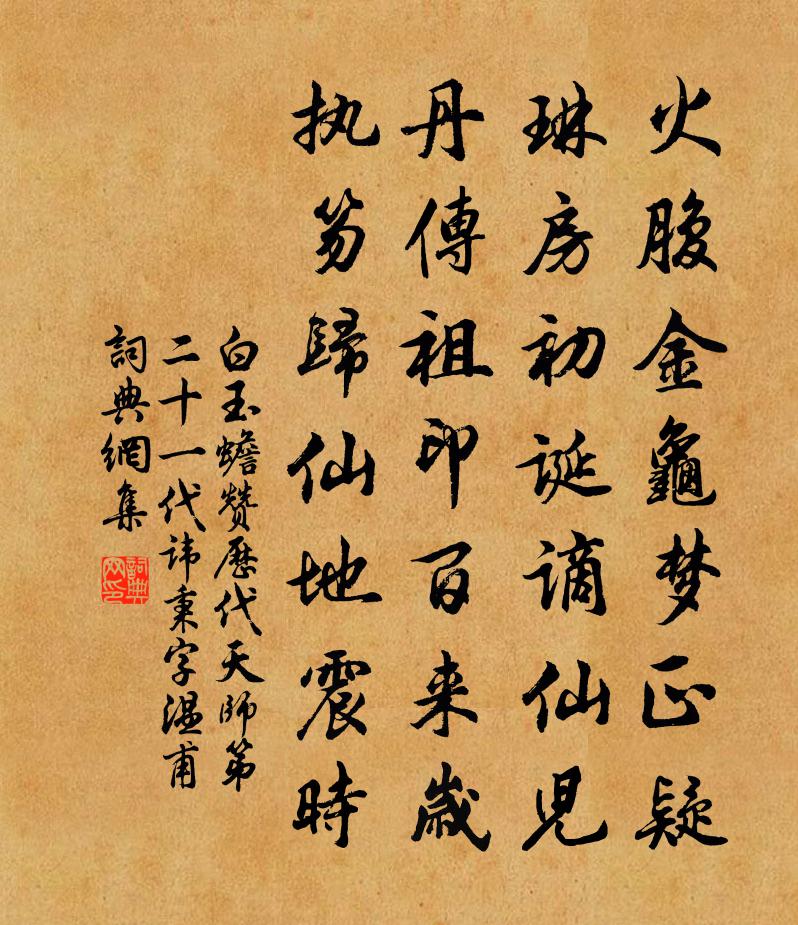 火腹金龜梦正疑
琳房初诞谪仙児
丹傳祖印百来歲
执笏歸仙地震時
白玉蟾赞歷代天師第
二十一代諱秉字温甫
詞典網集
詞典网印